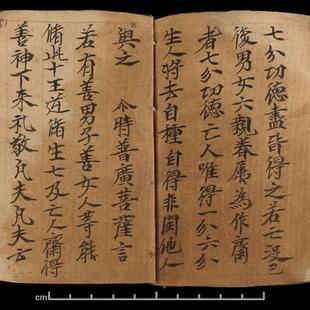 七分功德盡皆得之若亡没已
後男女六親眷属為作齋
者七分功德亡人唯得一分六分
生人將去自種自得非関他人
與之　尒時普廣菩薩言
若有善男子善女人等能
脩此十王逆脩生七及亡人齋得
善神下来礼敬凡夫凡夫云
cm